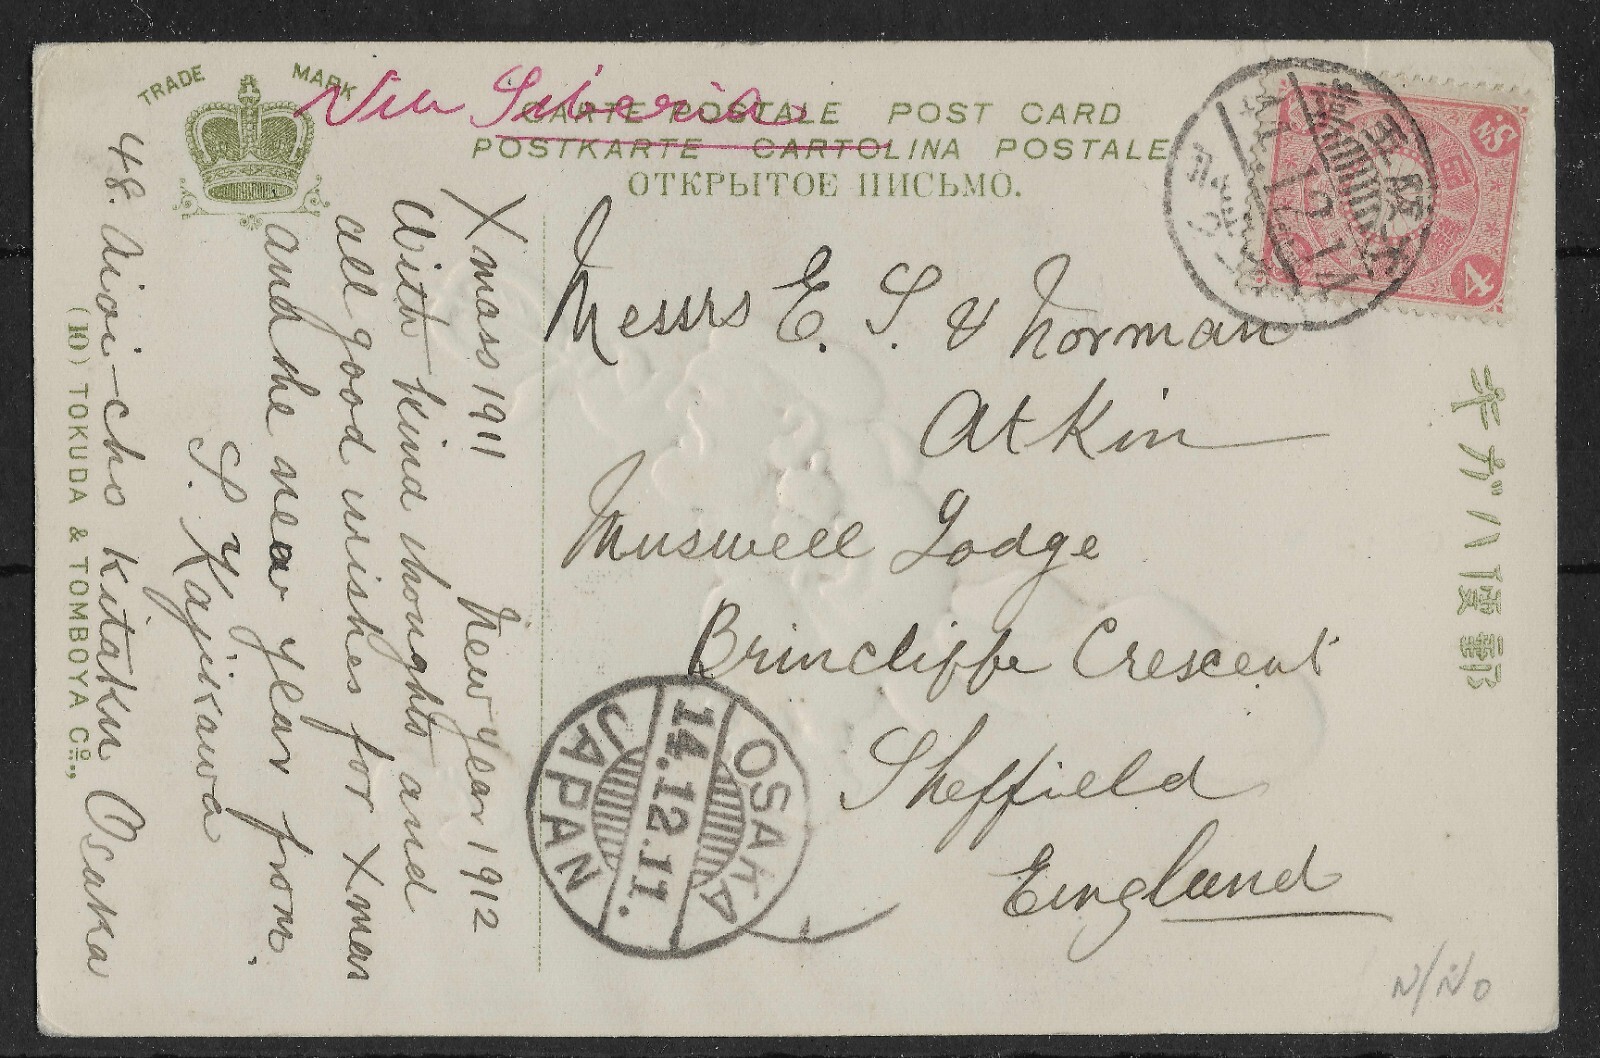 TRADE MARK
Via Siberia
CARTE POSTALE POST CARD
POSTKARTE CARTOLINA POSTALE
ОТКРЫТОЕ ПИСЬМО.
Messrs E. S. & Norman
Atkin
Muswell Lodge
Brincliffe Crescent
Sheffield
England
Xmass 1911 New year 1912
With kind thoughts and
all good wishes for Xmas
and the near year from.
S. Kajikawa
48. Aioi-cho Kitaku Osaka
(10) TOKUDA & TOMBOYA Co.,
OSAKA
14.12.11.
JAPAN
4
4
Sn.
大阪
N/No